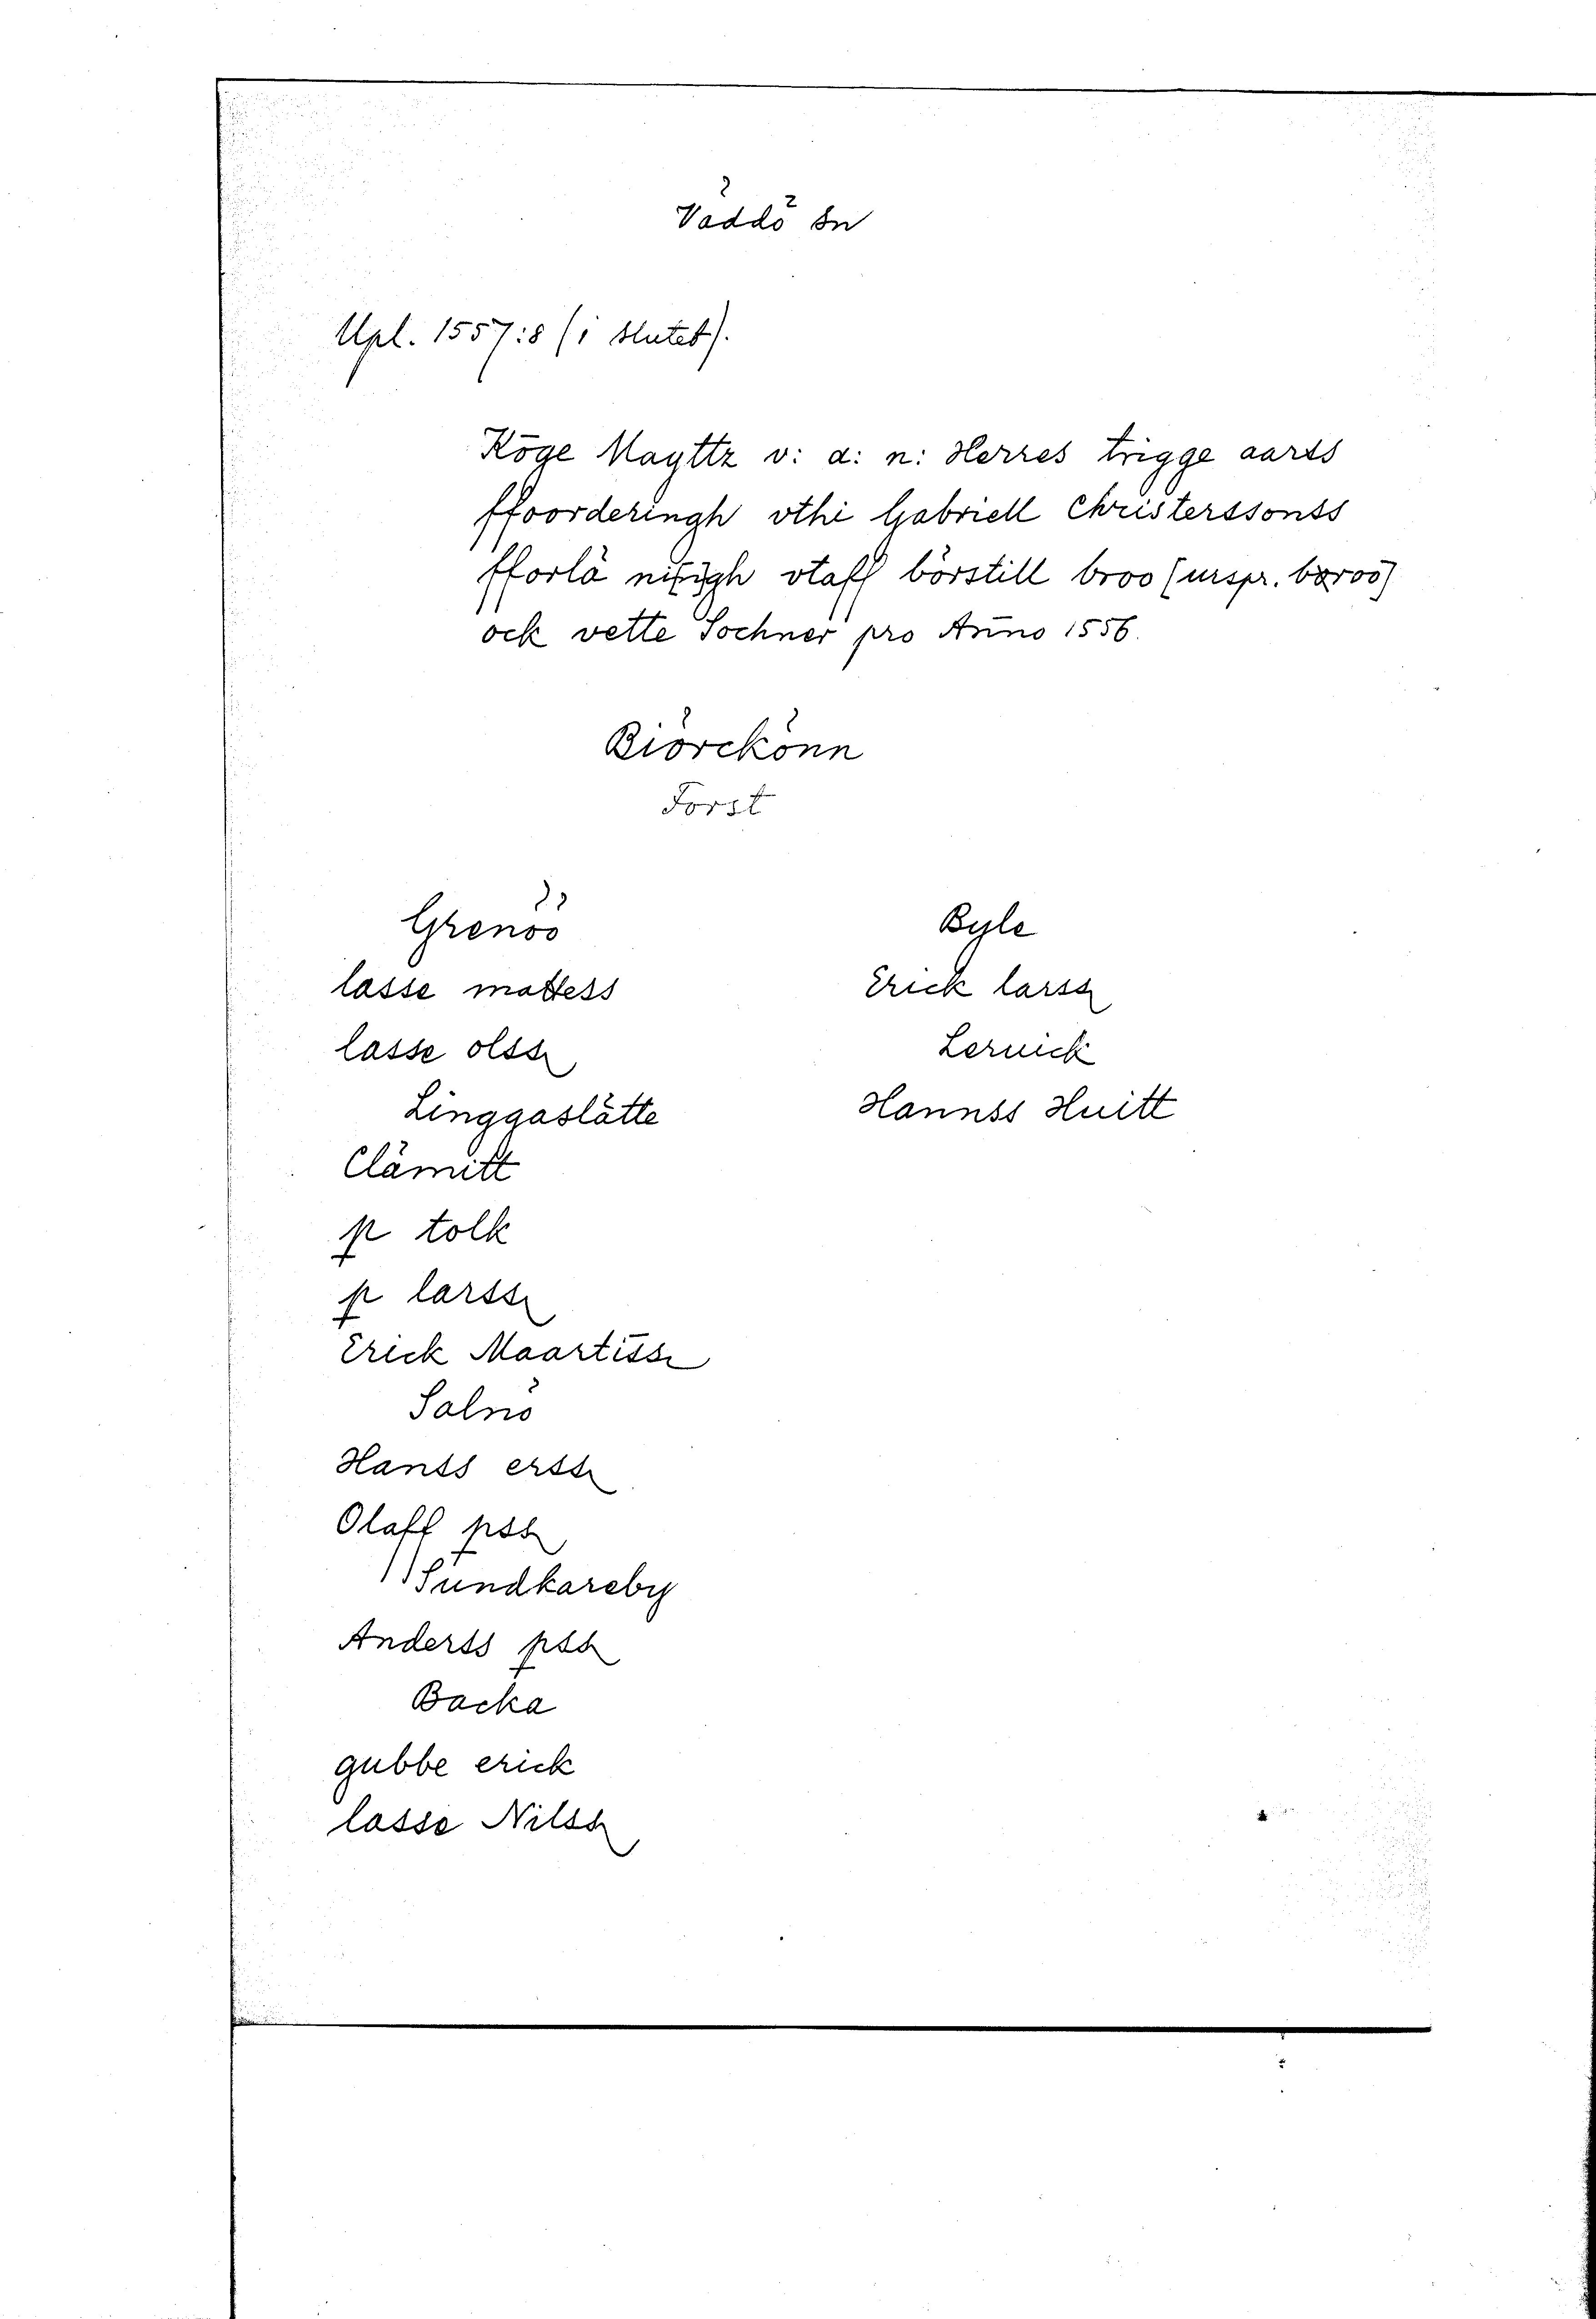 Väddö sn
Upl. 1557:8 (i slutet).
Köge Mayttz v: a: n: Herres trigge aarss
ffoorderingh vthi Gabriell Christerssonss
fforlä nigh vtaff börstill broo (urspr. boroo)
ock vette Sochner pro Anno 1556.
Biörckönn
Forst
Grenöö
lasse mattess
lasse olss
Linggaslätte
Clämitt
p tolk
p larss
Erick Maartiss
Salnö
Hanss erss
Olaff pss
Sundkareby
Anderss pss
Backa
gubbe erick
lasse Nilss
Byle
Erick larss
Leruick
Hannss Huitt